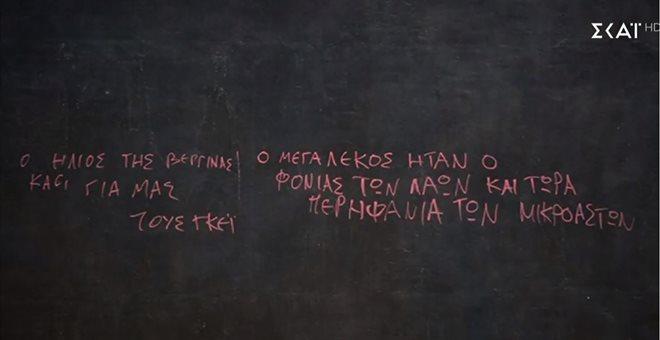 ΣΚΑΪ HD
Ο ΗΛΙΟΣ ΤΗΣ ΒΕΡΓΙΝΑΣ
ΚΑΕΙ ΓΙΑ ΜΑΣ
ΤΟΥΣ ΓΚΕΪ
Ο ΜΕΓΑΛΕΚΟΣ ΗΤΑΝ Ο
ΦΟΝΙΑΣ ΤΩΝ ΛΑΩΝ ΚΑΙ ΤΩΡΑ
ΠΕΡΗΦΑΝΙΑ ΤΩΝ ΜΙΚΡΟΑΣΤΩΝ